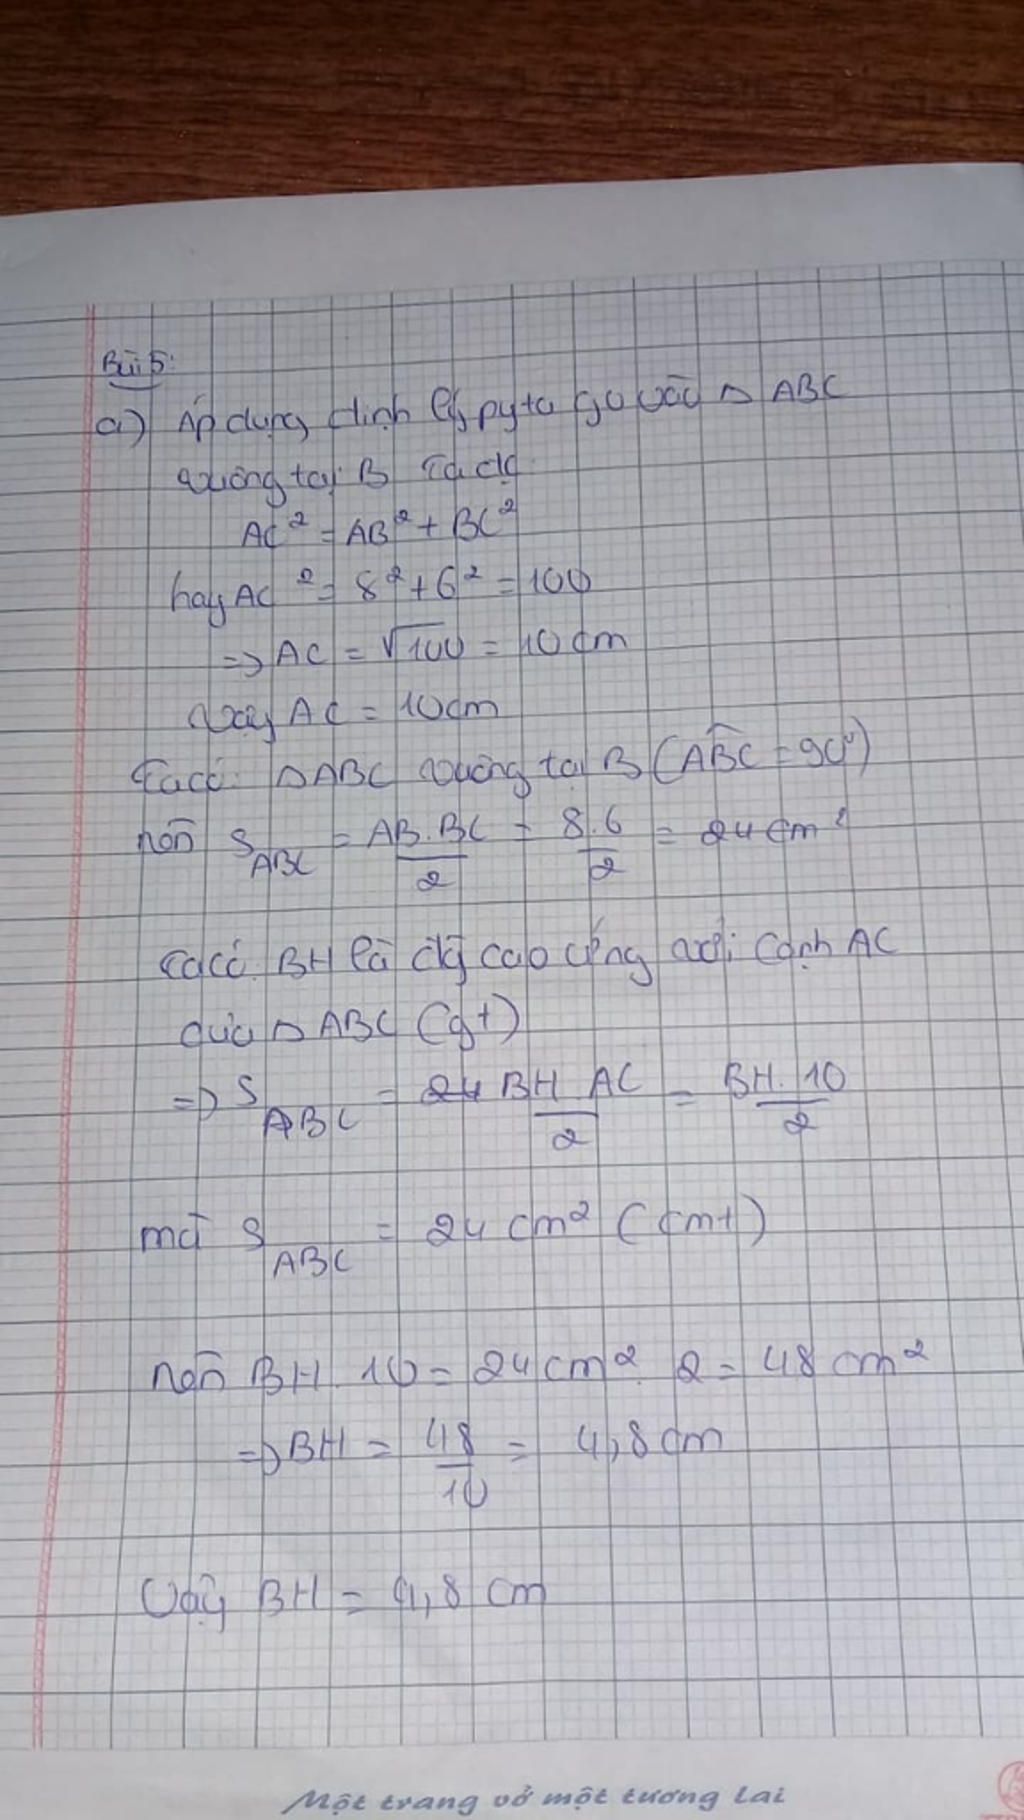 Bài 5:
a) Áp dụng định lý pytago vào Δ ABC
vuông tại B ta có
AC² = AB² + BC²
hay AC² = 8² + 6² = 100
=> AC = √100 = 10 cm
vậy AC = 10cm
Ta có: Δ ABC vuông tại B (ABC = 90°)
nên S ABC = AB.BC / 2 = 8.6 / 2 = 24 cm²
Ta có: BH là đg cao ứng với cạnh AC
của Δ ABC (gt)
=> S ABC = BH AC / 2 = BH. 10 / 2
mà S ABC = 24 cm² (cmt)
nên BH. 10 = 24 cm². 2 = 48 cm²
=> BH = 48 / 10 = 4,8 cm
Vậy BH = 4,8 cm
Một trang vở một tương lai